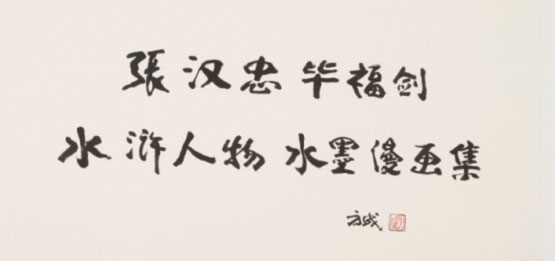 張汉忠 毕福剑
水浒人物 水墨漫画集
方成